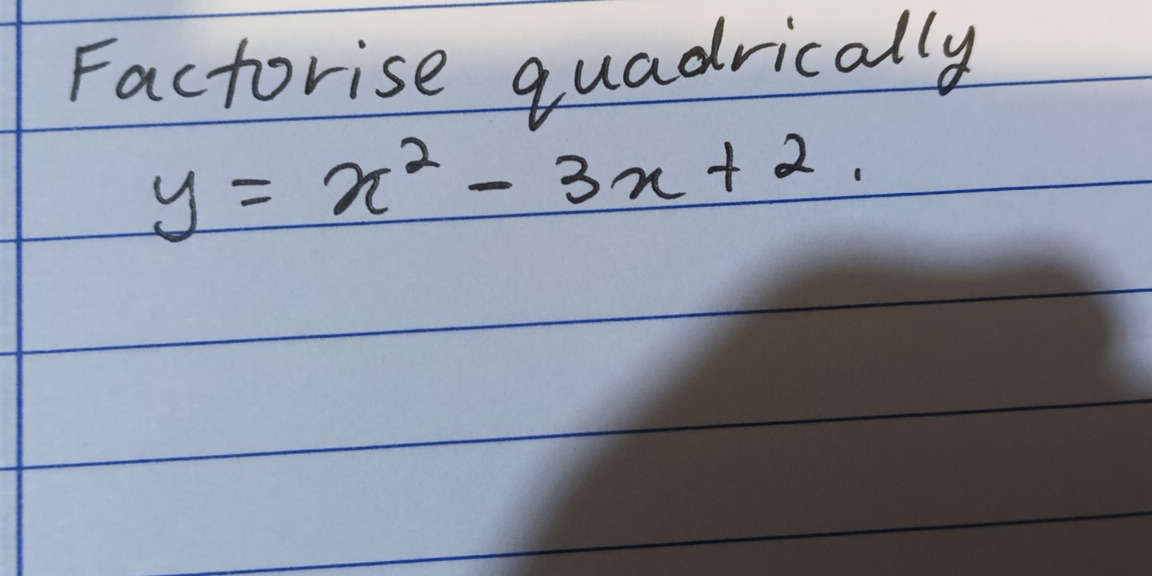 Factorise quadrically
y = x² - 3x + 2.